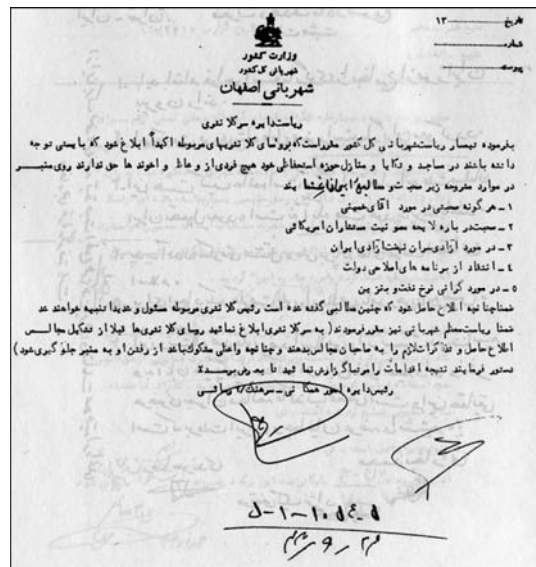 تاریخ ۱۳
شماره
پیوست
وزارت کشور
شهربانی کل کشور
شهربانی اصفهان
ریاست دایره سرکلانتری
بفرموده تیمسار ریاست شهربانی کل کشور مقرر است که بروسای کلانتریهای مربوطه اکیداً ابلاغ شود که بایستی توجه
داشته باشند در مساجد و تکایا و منازل حوزه استحفاظی خود هیچ فردی از وعاظ و آخوندها حق ندارند روی منبر
در موارد مشروحه زیر صحبت و مطالبی ایراد نمایند
۱ـ هرگونه صحبتی در مورد آقای خمینی
۲ـ صحبت درباره لایحه مصونیت مستشاران امریکائی
۳ـ در مورد آزادی سران نهضت آزادی ایران
٤ـ انتقاد از برنامه های اصلاحی دولت
۵ـ در مورد گرانی نرخ نفت و بنزین
ضمناً چنانچه اطلاع حاصل شود که چنین مطالبی گفته شده است رئیس کلانتری مربوطه مسئول و شدیداً تنبیه خواهند شد
ضمناً ریاست معظم شهربانی نیز مقرر فرمودند (به سرکلانتری ابلاغ نمائید روسای کلانتری ها قبلا از تشکیل مجالس
اطلاع حاصل و تذکرات لازم را به صاحبان مجالس بدهند و چنانچه واعظی مشکوک باشد از رفتن او به منبر جلوگیری شود)
دستور فرمایند نتیجه اقدامات را مرتباً گزارش نمائید تا بعرض برسد
رئیس دایره امور همگانی ـ سرهنگ